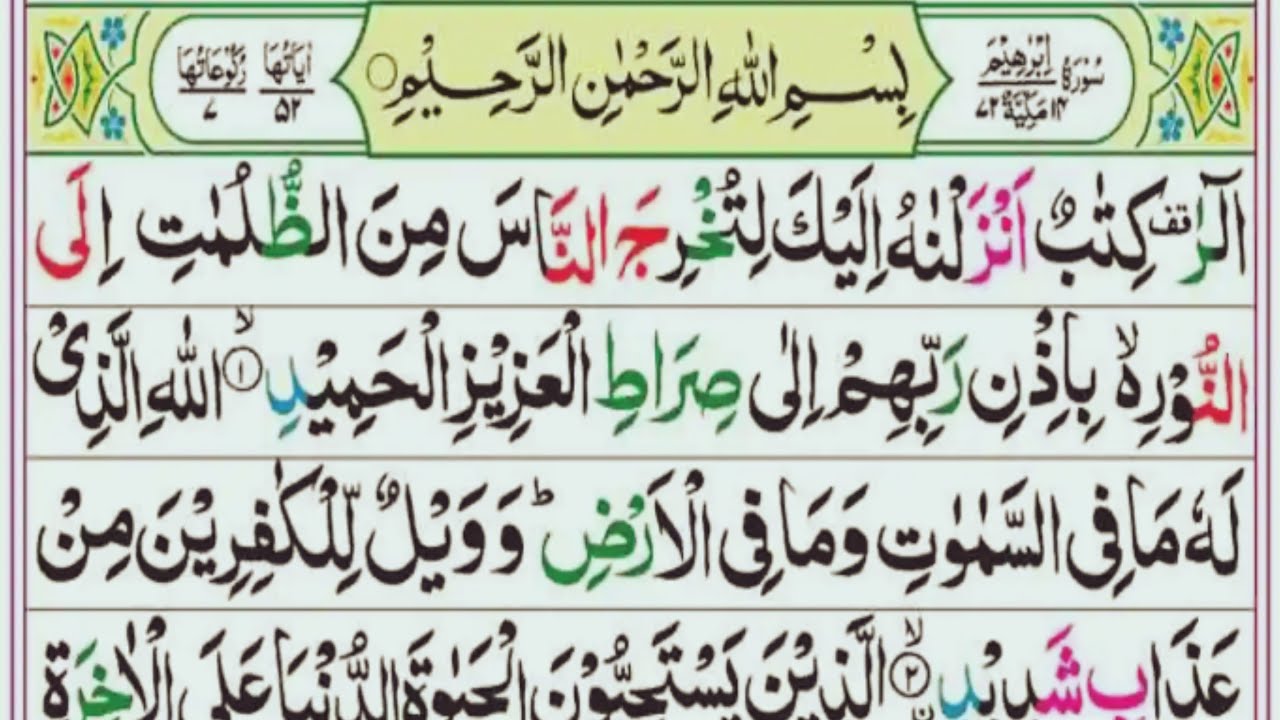 سُوْرَةُ اِبْرٰهِیْمَ ۱۴ مَكِّیَّةٌ ۷۲
بِسْمِ اللهِ الرَّحْمٰنِ الرَّحِیْمِ
اٰیَاتُهَا ۵۲ رُكُوْعَاتُهَا ۷
الٓرٰ قف كِتٰبٌ اَنْزَلْنٰهُ اِلَیْكَ لِتُخْرِجَ النَّاسَ مِنَ الظُّلُمٰتِ اِلَی
النُّوْرِ ۙ۬ بِاِذْنِ رَبِّهِمْ اِلٰی صِرَاطِ الْعَزِیْزِ الْحَمِیْدِ ۙ۱ اللهِ الَّذِیْ
لَهٗ مَا فِی السَّمٰوٰتِ وَمَا فِی الْاَرْضِ ؕ وَوَیْلٌ لِّلْكٰفِرِیْنَ مِنْ
عَذَابٍ شَدِیْدِ ۙ۲ الَّذِیْنَ یَسْتَحِبُّوْنَ الْحَیٰوةَ الدُّنْیَا عَلَی الْاٰخِرَةِ